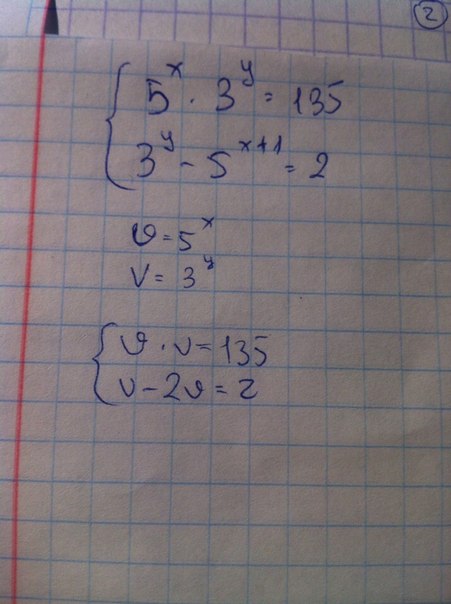 2
5^x · 3^y = 135
3^y - 5^{x+1} = 2
υ = 5^x
v = 3^y
υ · v = 135
v - 2υ = 2